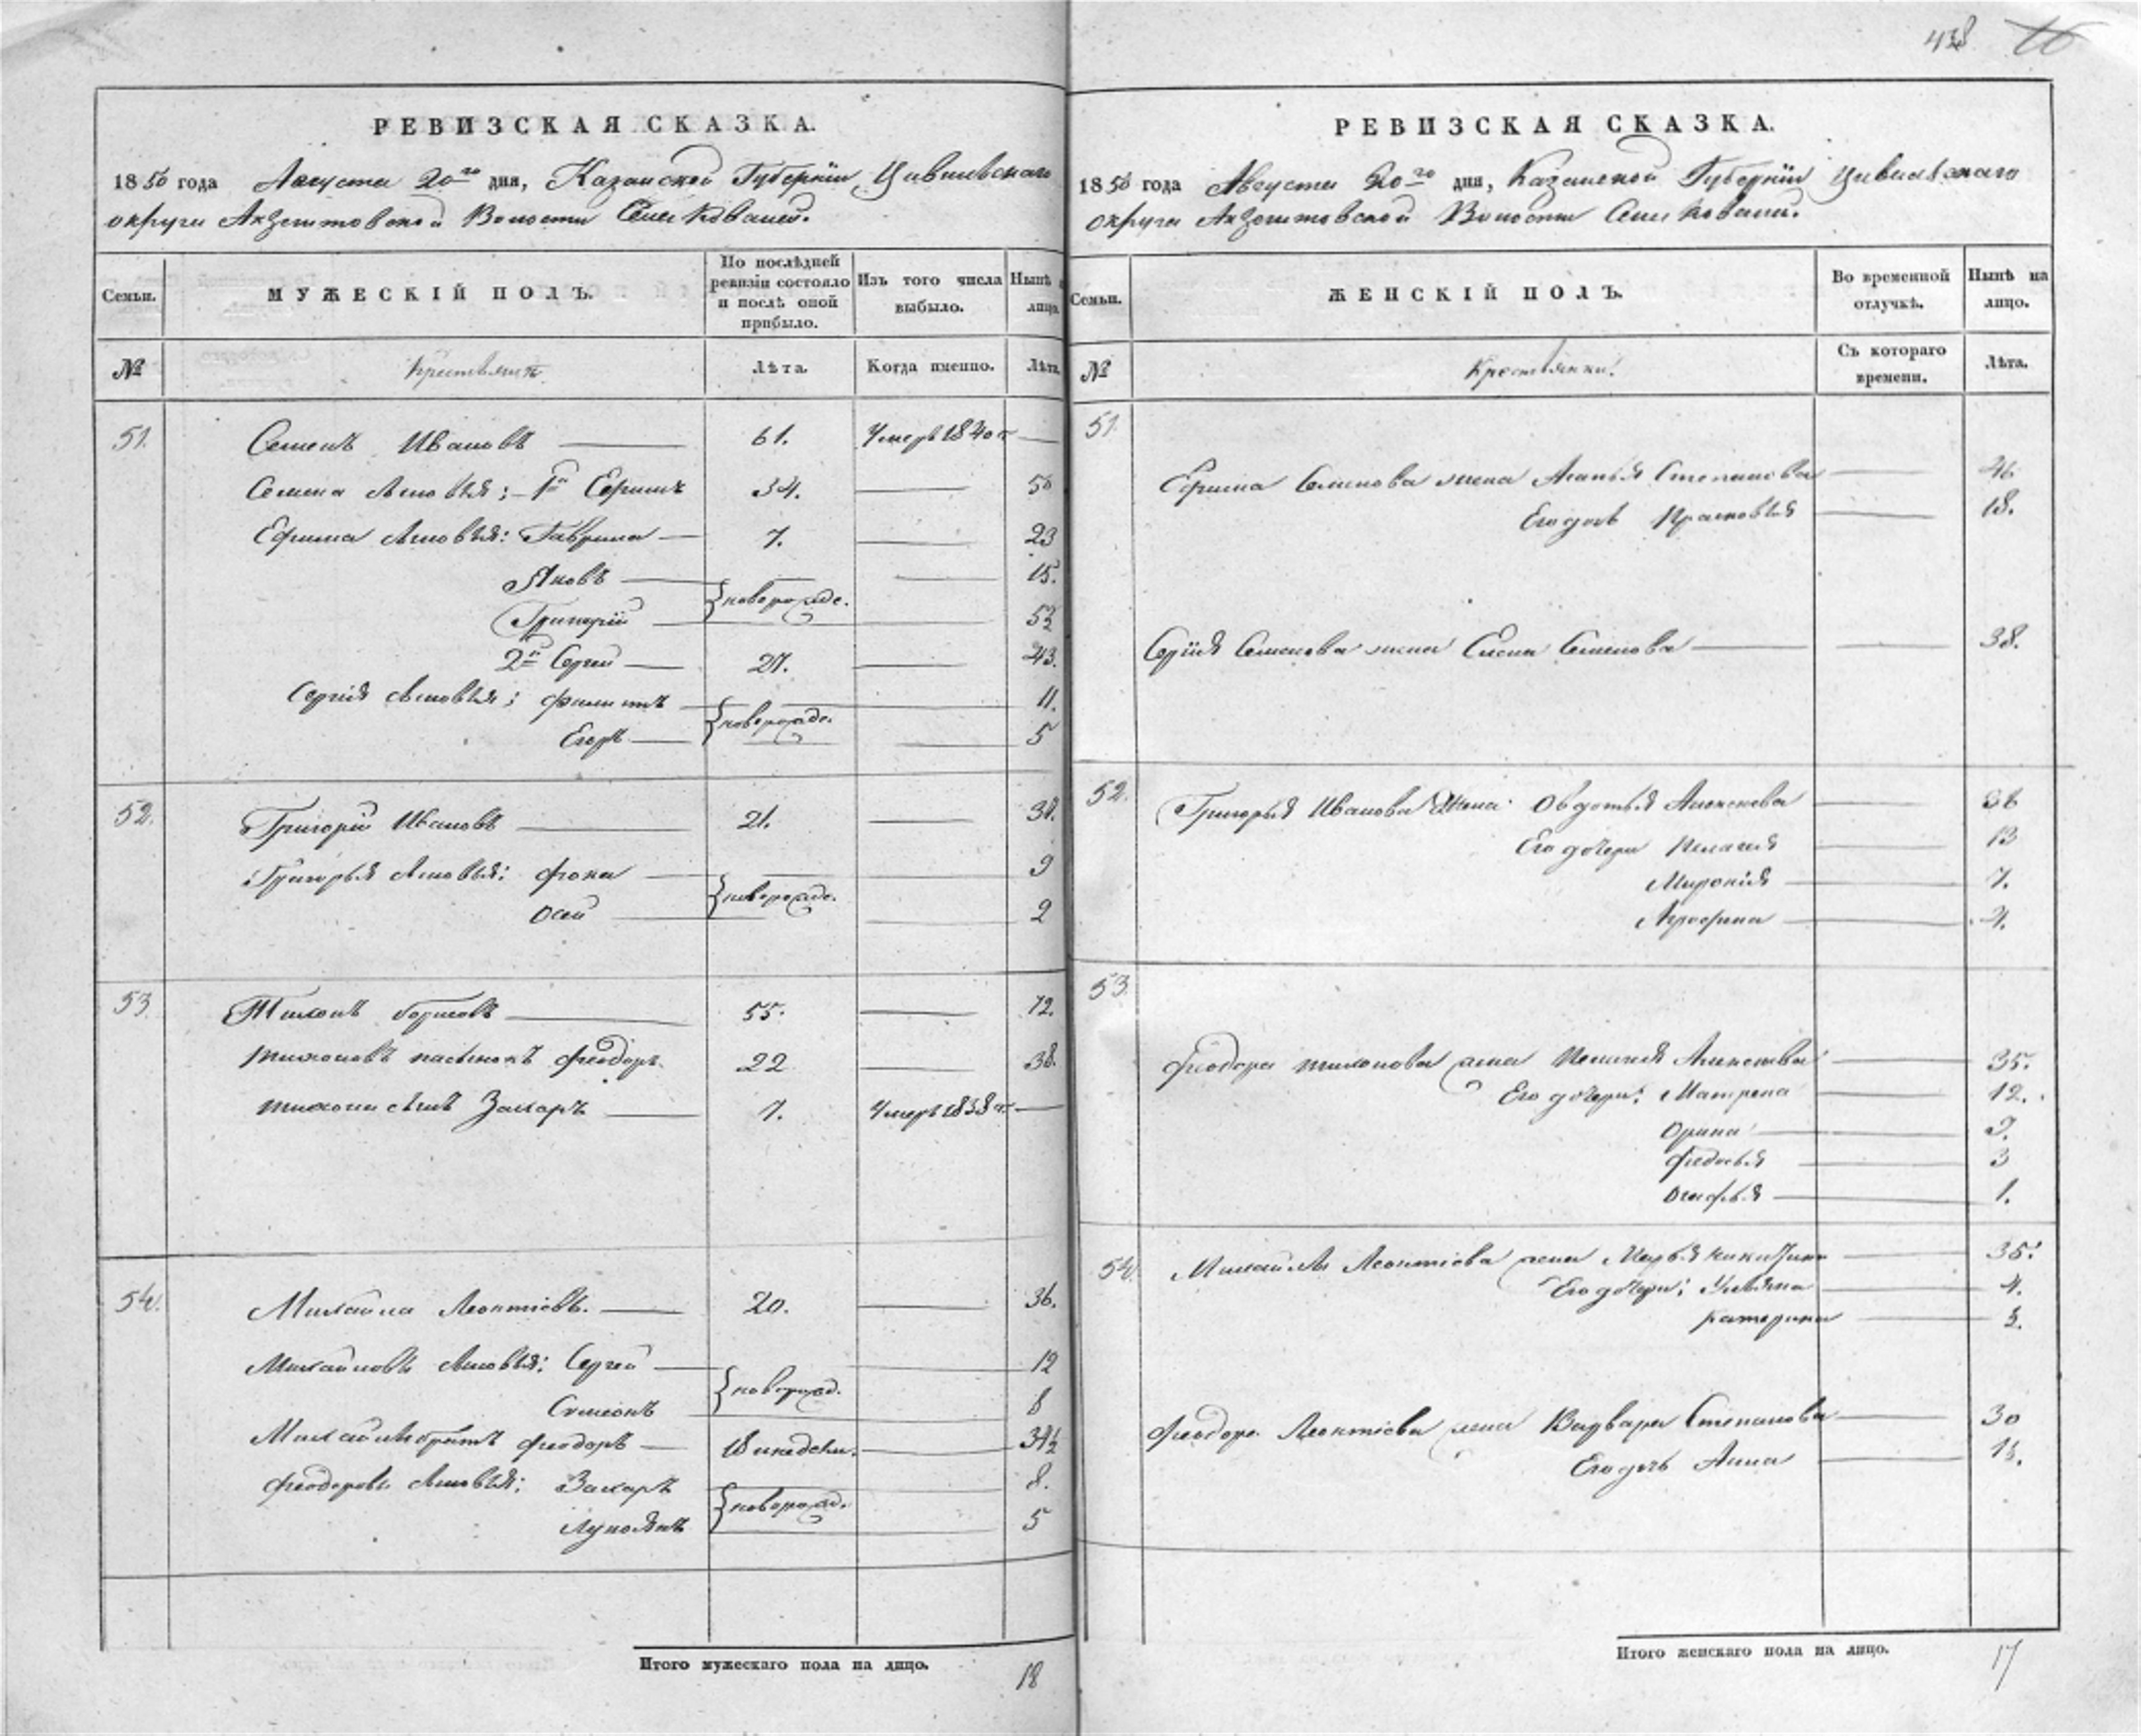 438
РЕВИЗСКАЯ СКАЗКА.
1850 года Августа 20го дня, Казанской Губернiи Цивильскаго
округи Акзегитовской Волости
Семьи.
МУЖЕСКIЙ ПОЛЪ.
По послѣдней ревизiи состояло и послѣ оной прибыло.
Изъ того числа выбыло.
Нынѣ лицо.
№
Крестьянъ
Лѣта.
Когда именно.
Лѣта.
51. Семенъ Ивановъ 61. Умеръ 1840 г.
Семена сыновья: 1й Ефимъ 34. 50
Ефима сыновья: Гаврила 7. 23
Яковъ новорожде. 15.
Григорiй 5½
2й Сергей 27. 43.
Сергiя сыновья: Филиппъ новорожде. 11.
Егоръ 5
52. Григорiй Ивановъ 21.
Григорья сыновья: Фока новорожде. 9
Осей 2
53. Тихонъ Борисовъ 55. 72.
Тихоновъ пасынокъ Феодоръ 22 38.
Тихона сынъ Захаръ 7. Умеръ 1838 г.
54. Михайла Леонтiевъ. 20. 36.
Михайловы сыновья: Сергей новорожд. 12
Симеонъ 8
Михайлы братъ Феодоръ 18 недель.
Феодоровы сыновья: Захаръ новорожд. 8.
Лукоянъ 5
Итого мужескаго пола на лицо. 18
РЕВИЗСКАЯ СКАЗКА.
1850 года Августа 20го дня, Казанской Губернiи Цивильскаго
округи Акзегитовской Волости
Семьи.
ЖЕНСКIЙ ПОЛЪ.
Во временной отлучкѣ.
Нынѣ на лицо.
№
Крестьянки.
Съ котораго времени.
Лѣта.
51.
Ефима Семенова жена Степанова 46
Его дочь Прасковья 18.
Сергiя Семенова жена Елена Семенова 38.
52. Григорья Иванова жена Овдотья Алексеева
Его дочери Пелагея 13
7.
4.
53.
Феодора Тихонова жена Пелагея Алексеева 35.
Его дочери: Матрена 12.
Орина 9.
Федосья 3
Огафья 1.
54. Михайлы Леонтiева жена Марья Никитина 35.
Его дочери: Ульяна 4.
Катерина
Феодора Леонтiева жена Варвара Степанова 30
Его дочь Анна
Итого женскаго пола на лицо. 17